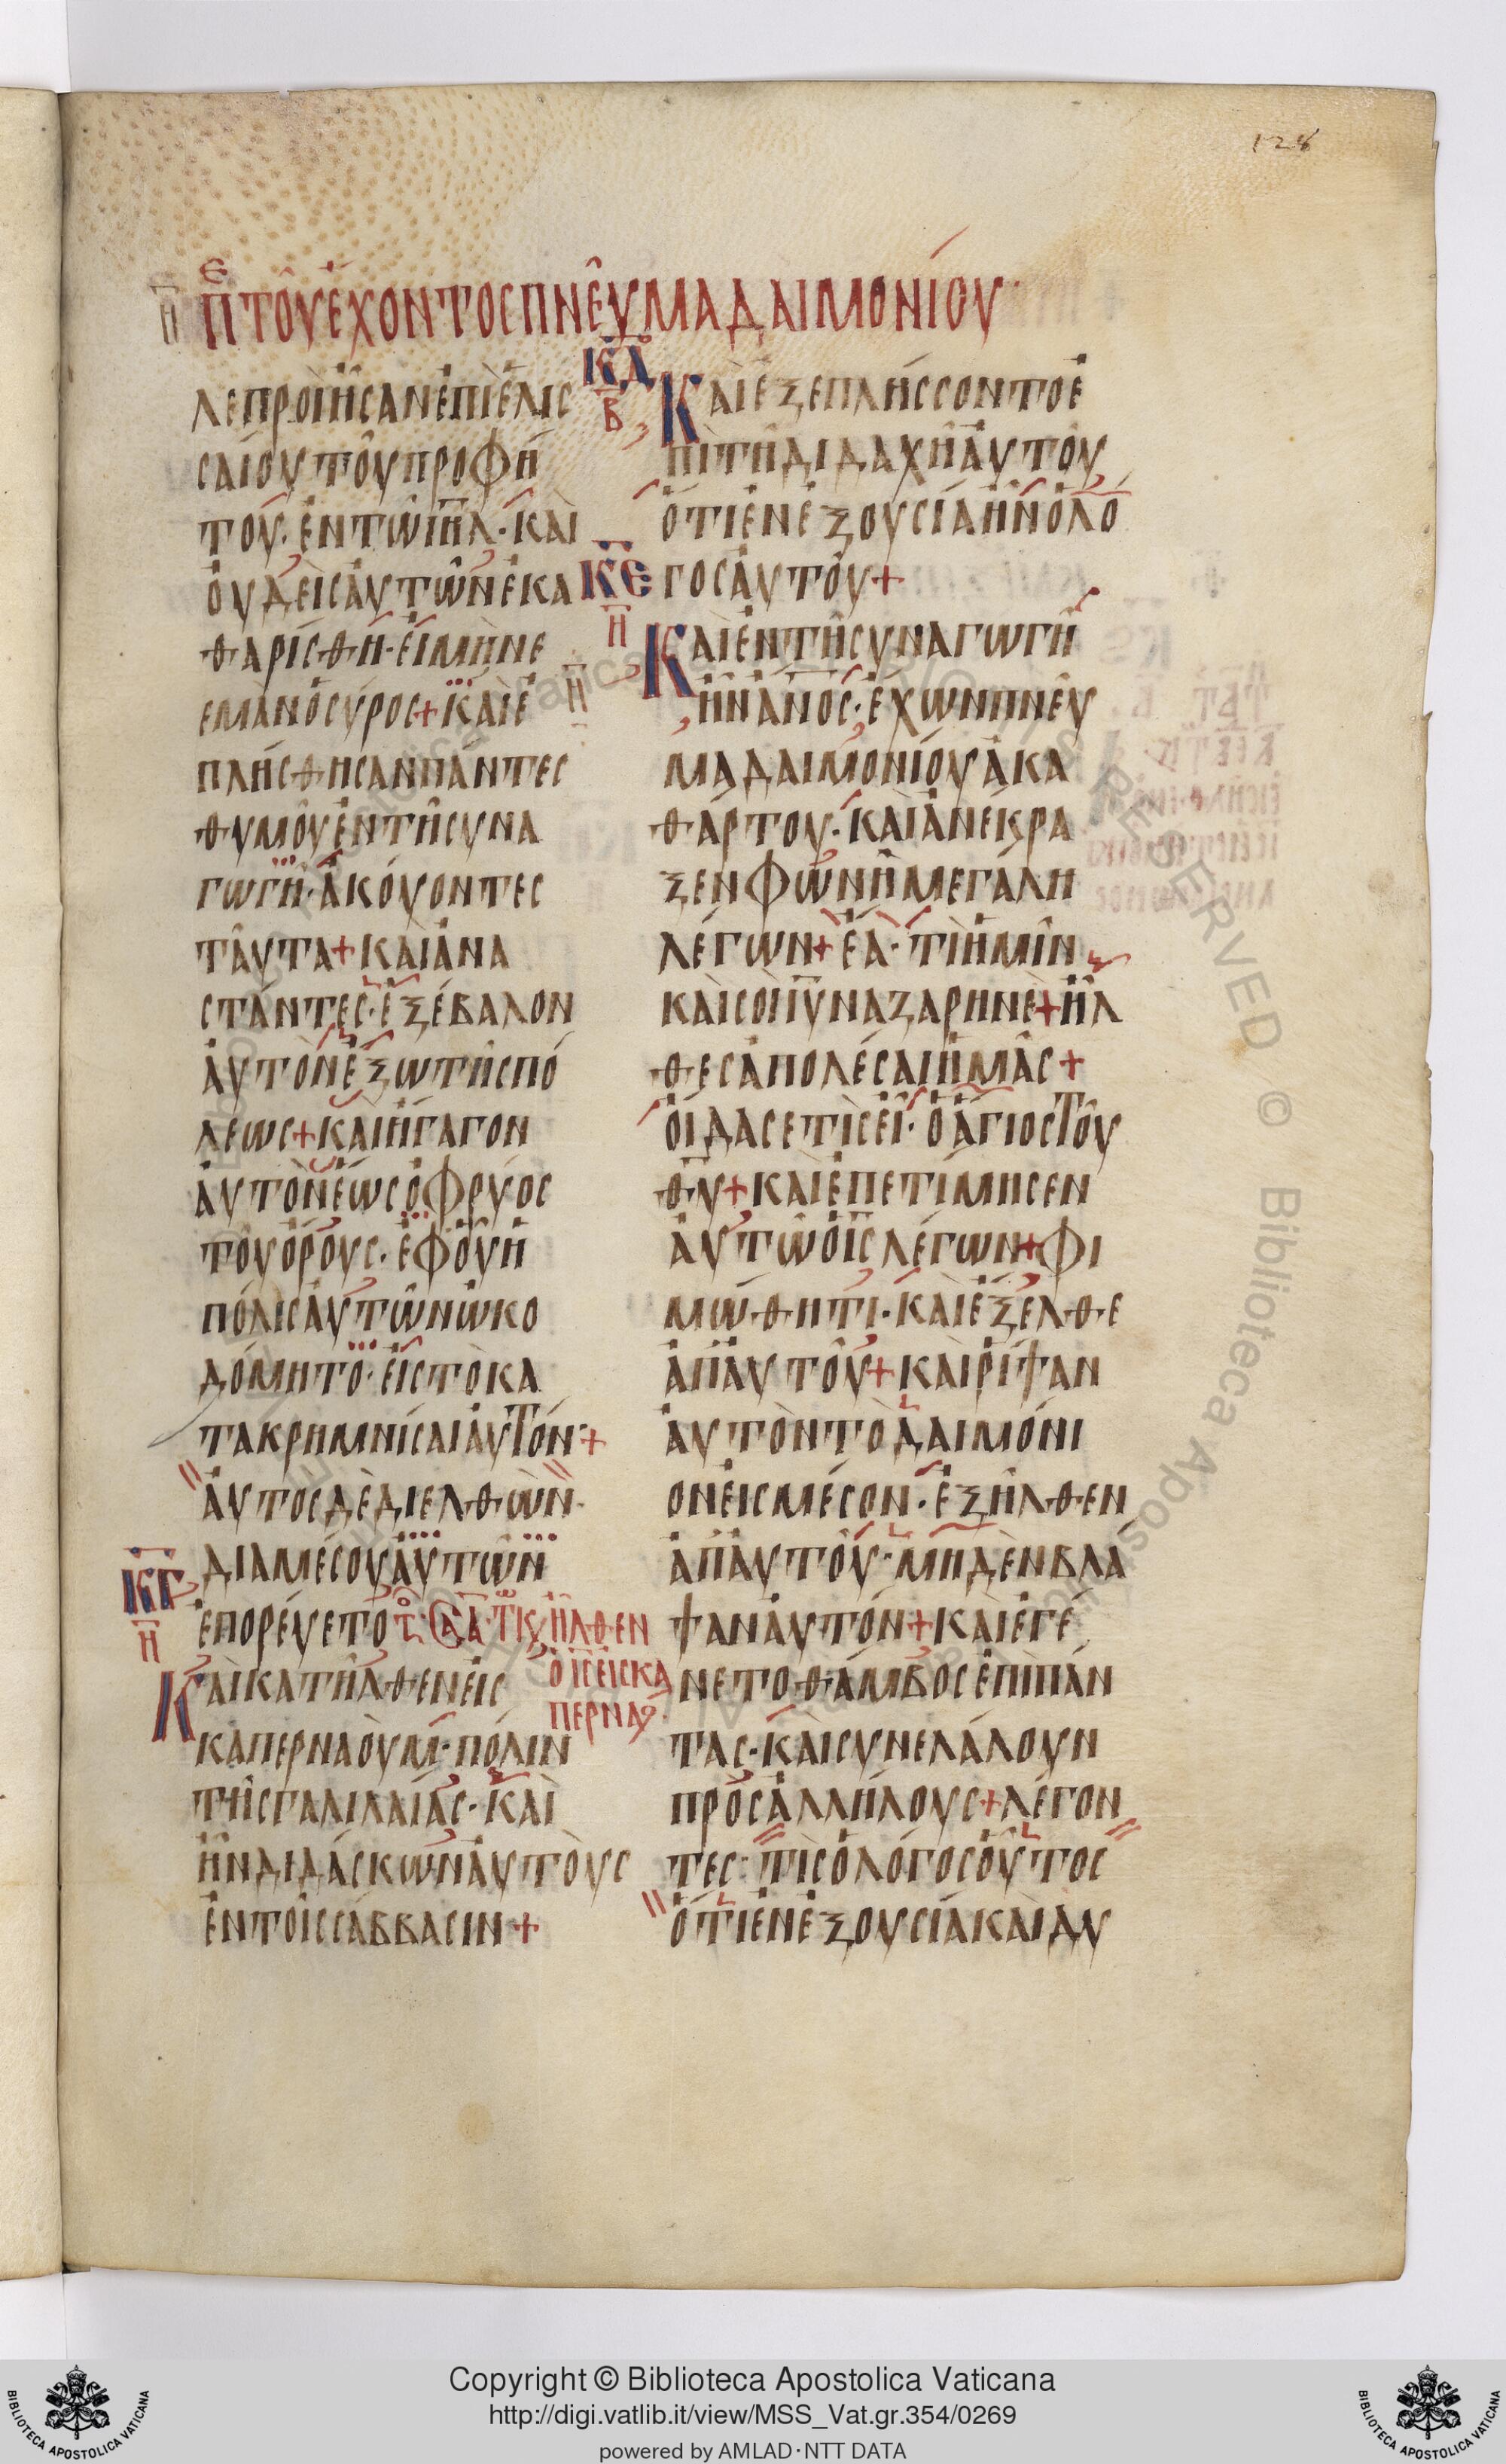 128
Ε Π ΤΟῦ ἘΧΟΝΤΟΣ ΠΝΕῦΜΑ ΔΑΙΜΟΝΊΟΥ
ΛΕΠΡΟῚ ἮΣΑΝ ἘΠῚ ἘΛΙΣ
ΣΑΊΟΥ ΤΟῦ ΠΡΟΦΉ
ΤΟΥ· ἘΝ ΤΩ ΙΗΛ· ΚΑῚ
ΟΥΔΕῚΣ ΑΥΤΩΝ ἘΚΑ
ΘΑΡΊΣΘΗ· ΕἸ ΜῊ ΝΕ
ΕΜΑΝ Ο ΣΎΡΟΣ + ΚΑῚ Ε
ΠΛΉΣΘΗΣΑΝ ΠΆΝΤΕΣ
ΘΥΜΟῦ ἘΝ ΤΗ ΣΥΝΑ
ΓΩΓΗ· ἈΚΟΎΟΝΤΕΣ
ΤΑῦΤΑ + ΚΑῚ ἈΝΑ
ΣΤΆΝΤΕΣ· ἘΞΈΒΑΛΟΝ
ΑΥΤῸΝ ἜΞΩ ΤΗΣ ΠΌ
ΛΕΩΣ + ΚΑῚ ἬΓΑΓΟΝ
ΑΥΤῸΝ ἝΩΣ ὈΦΡΎΟΣ
ΤΟῦ ὌΡΟΥΣ· ἘΦ ΟΥ Η
ΠΌΛΙΣ ΑΥΤΩΝ ΩΚΟ
ΔΌΜΗΤΟ· ΕἸΣ ΤῸ ΚΑ
ΤΑΚΡΗΜΝΊΣΑΙ ΑΥΤΌΝ +
ΑΥΤΟΣ ΔῈ ΔΙΕΛΘΩΝ·
ΔΙΑ ΜΈΣΟΥ ΑΥΤΩΝ
ΚΓ
Η
ἘΠΟΡΕΎΕΤΟ
ΗΛΘΕΝ
Ο ΙΣ ΕΙΣ ΚΑ
ΠΕΡΝΑ
ΚΑῚ ΚΑΤΗΛΘΕΝ ΕἸΣ
ΚΑΠΕΡΝΑΟΥΜ· ΠΌΛΙΝ
ΤΗΣ ΓΑΛΙΛΑΊΑΣ· ΚΑῚ
ΗΝ ΔΙΔΆΣΚΩΝ ΑΥΤΟῪΣ
ἘΝ ΤΟΙΣ ΣΆΒΒΑΣΙΝ +
ΚΔ
Β
ΚΑῚ ἘΞΕΠΛΉΣΣΟΝΤΟ Ε
ΠῚ ΤΗ ΔΙΔΑΧΗ ΑΥΤΟΥ
ὍΤΙ ἘΝ ἘΞΟΥΣΊΑ ΗΝ Ο ΛΌ
ΚΕ
Η
ΓΟΣ ΑΥΤΟῦ +
ΚΑῚ ἘΝ ΤΗ ΣΥΝΑΓΩΓΗ
ΗΝ ΑΝΟΣ· ἜΧΩΝ ΠΝΕΥ
ΜΑ ΔΑΙΜΟΝΊΟΥ ἈΚΑ
ΘΆΡΤΟΥ· ΚΑῚ ἈΝΈΚΡΑ
ΞΕΝ ΦΩΝΗ ΜΕΓΆΛΗ
ΛΈΓΩΝ + ἜΑ· ΤΊ ΗΜΙΝ
ΚΑῚ ΣΟῚ ΙΥ ΝΑΖΑΡΗΝΕ + ΗΛ
ΘΕΣ ἈΠΟΛΈΣΑΙ ΗΜΑΣ +
ΟΙΔΑ ΣΕ ΤΊΣ ΕΙ· Ο ἍΓΙΟΣ ΤΟΥ
ΘΥ + ΚΑῚ ἘΠΕΤΊΜΗΣΕΝ
ΑΥΤΩ Ο ΙΣ ΛΈΓΩΝ + ΦΙ
ΜΏΘΗΤΙ· ΚΑῚ ἜΞΕΛΘΕ
ἈΠ ΑΥΤΟΥ + ΚΑῚ ΡΊΨΑΝ
ΑΥΤῸΝ ΤῸ ΔΑΙΜΌΝΙ
ΟΝ ΕἸΣ ΜΈΣΟΝ· ἘΞΗΛΘΕΝ
ἈΠ ΑΥΤΟΥ· ΜΗΔῈΝ ΒΛΑ
ΨΑΝ ΑΥΤΌΝ + ΚΑῚ ἘΓΈ
ΝΕΤΟ ΘΆΜΒΟΣ ἘΠῚ ΠΆΝ
ΤΑΣ· ΚΑῚ ΣΥΝΕΛΆΛΟΥΝ
ΠΡΟΣ ἈΛΛΉΛΟΥΣ + ΛΈΓΟΝ
ΤΕΣ· ΤΊΣ Ο ΛΌΓΟΣ ΟΥΤΟΣ
ὍΤΙ ἘΝ ἘΞΟΥΣΊΑ ΚΑῚ ΔΥ
Copyright © Biblioteca Apostolica Vaticana
http://digi.vatlib.it/view/MSS_Vat.gr.354/0269
powered by AMLAD·NTT DATA
BIBLIOTECA APOSTOLICA VATICANA
BIBLIOTECA APOSTOLICA VATICANA